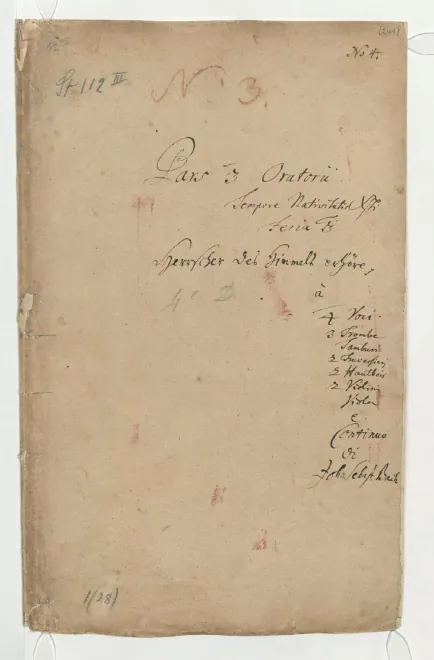 No 4.
St 112 III
No 3.
Pars 3 Oratorii
Tempore Nativitatis Xsti
Feria 3
Herrscher des Himmels erhöre,
à
4 Voci.
3 Trombe
Tamburi
2 Travers:
2 Hautbois
2 Violini
Viola
e
Continuo
di
Joh. Sebast. Bach
1(28)